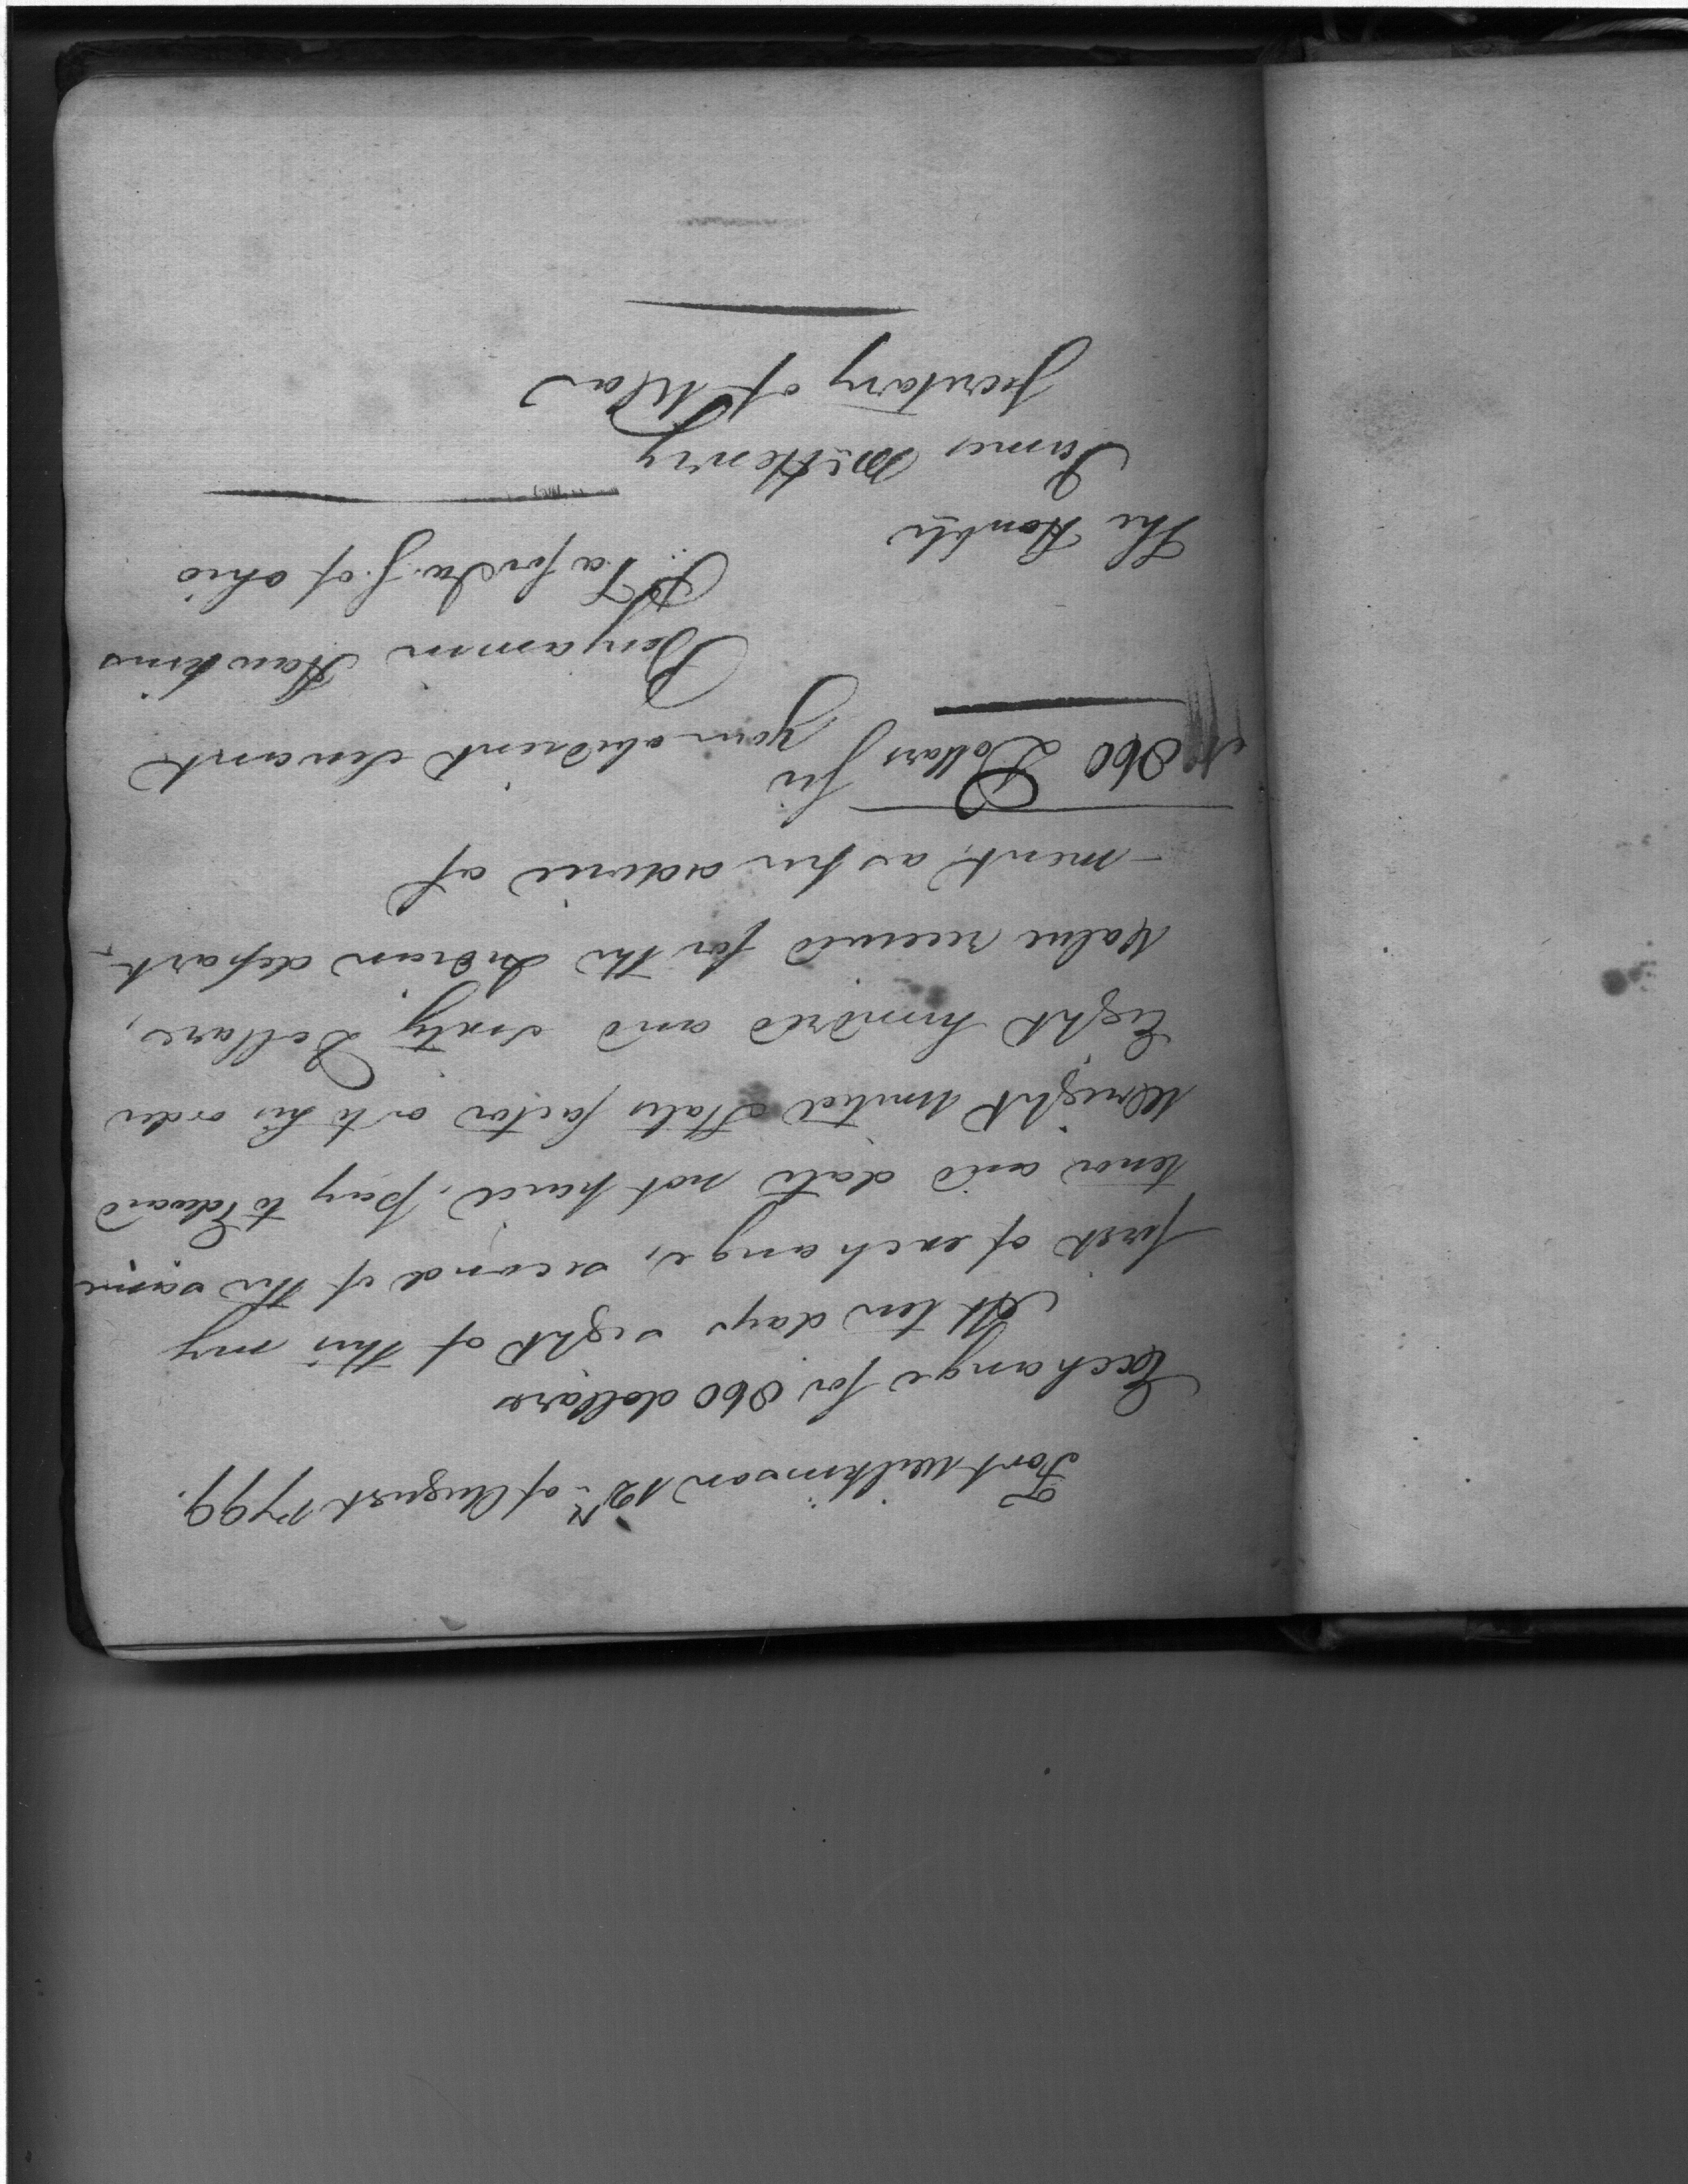 Fort Wilkinson 12th of August 1799.
Exchange for 860 dollars
At ten days sight of this my
first of exchange, second of the same
tenor and date not paid, pay to Edward
Wright United States factor or to his order
Eight hundred and sixty Dollars,
Value received for the Indian depart-
-ment, as per advice of
860 Dollars Sir
your obedient servant
Benjamin Hawkins
P. T. a for In. S. of Ohio
The Honble
James McHenry
Secretary of War